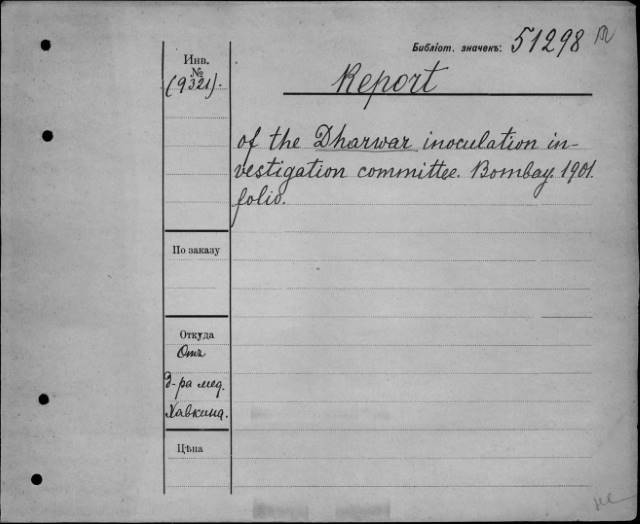 Библіот. значекъ: 51298
Инв.
№
(9321).
Report
of the Dharwar inoculation in-
vestigation committee. Bombay. 1901.
folio.
По заказу
Откуда
Отъ
д-ра мед.
Хавкина.
Цѣна